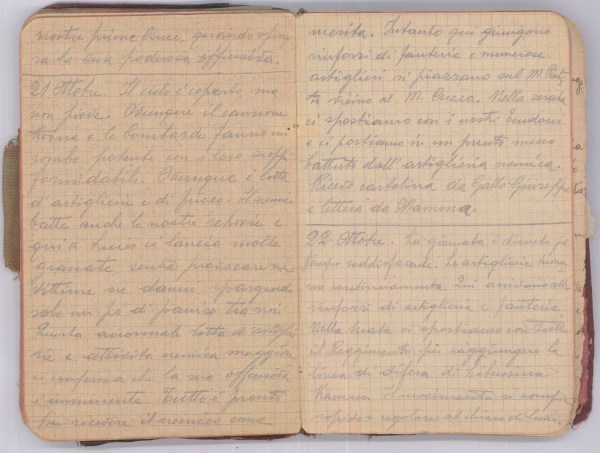 nostre prime linee, quando sferre-
rà la sua poderosa offensiva.
21 Ottobre. Il cielo è coperto, ma
non piove. Ovunque il cannone
tuona e le bombarde fanno un
rombo potente con i loro scoppi
formidabili. Ovunque è lotta
d'artiglierie e di fuoco. Il nemico
batte anche le nostre retrovie e
qui a ci lancia molte
granate senza provocare né
vittime né danni, spargendo
solo un pò di panico tra noi.
Questa anormale lotta di artiglie-
rie e attività nemica maggior-
e conferma che la sua offensiva
è imminente. Tutto è pronto
per ricevere il nemico come
merita. Intanto qui giungono
rinforzi di fanterie e numerose
artiglierie si piazzano sul M.
vicino al M. Cucco. Nella serata
ci spostiamo con i nostri
e ci portiamo in un punto meno
battuto dall'artiglieria nemica.
Ricevo cartolina da Gallo Giuseppe
e lettera da Mamma.
22 Ottobre. La giornata è
tempo soddisfacente. Le artiglierie tuona-
no continuamente. Qui arrivano altri
rinforzi di artiglieria e fanterie.
Nella serata ci spostiamo con tutto
il Reggimento per raggiungere la
linea di difesa di
Kamma. Il movimento si compie
rapido e regolare al chiaro di luna.